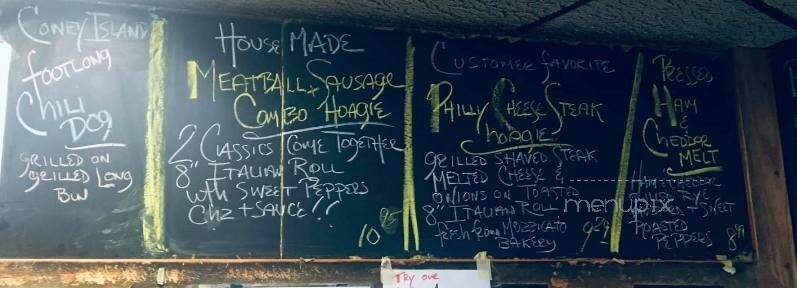 CONEY ISLAND
FOOTLONG
CHILI
DOG
GRILLED ON
GRILLED LONG
BUN
HOUSE MADE
MEATBALL & SAUSAGE
COMBO HOAGIE
2 CLASSICS COME TOGETHER
8" ITALIAN ROLL
WITH SWEET PEPPERS
CHZ + SAUCE!!
10
CUSTOMER FAVORITE
PHILLY CHEESE STEAK
HOAGIE
GRILLED SHAVED STEAK
MELTED CHEESE &
ONIONS ON TOASTED
8" ITALIAN ROLL
FRESH FROM MOZZICATO
BAKERY
PRESSED
HAM
&
CHEDDAR
MELT
HAM CHEDDAR
RYE
SWEET
ROASTED
PEPPERS
8
menupix
TRY OUR